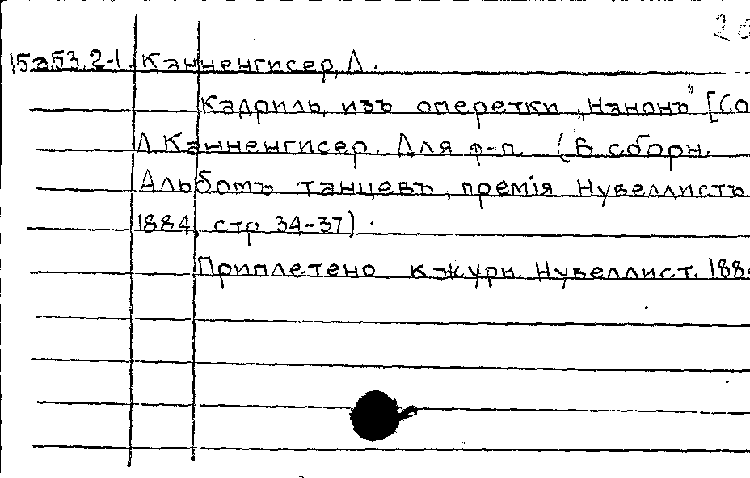 15а53.2-1. Канненгисер, Л.
Кадриль изъ оперетки „Нанонъ" [Со
Л. Канненгисер. Для ф-п. (В сборн.
Альбомъ танцевъ, премія Нувеллистъ
1884, стр 34-37).
Приплетено к журн. Нувеллист. 188